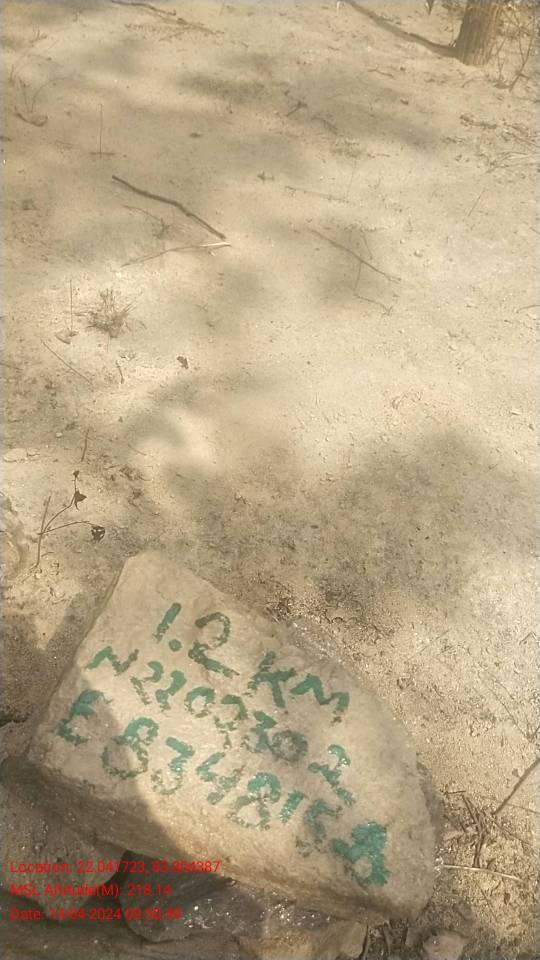 1.2 KM
N2202302
E8348158
Location: 22.041723, 83.804387
MSL Altitude(M) :218.14
Date: 14-04-2024 09:50:49